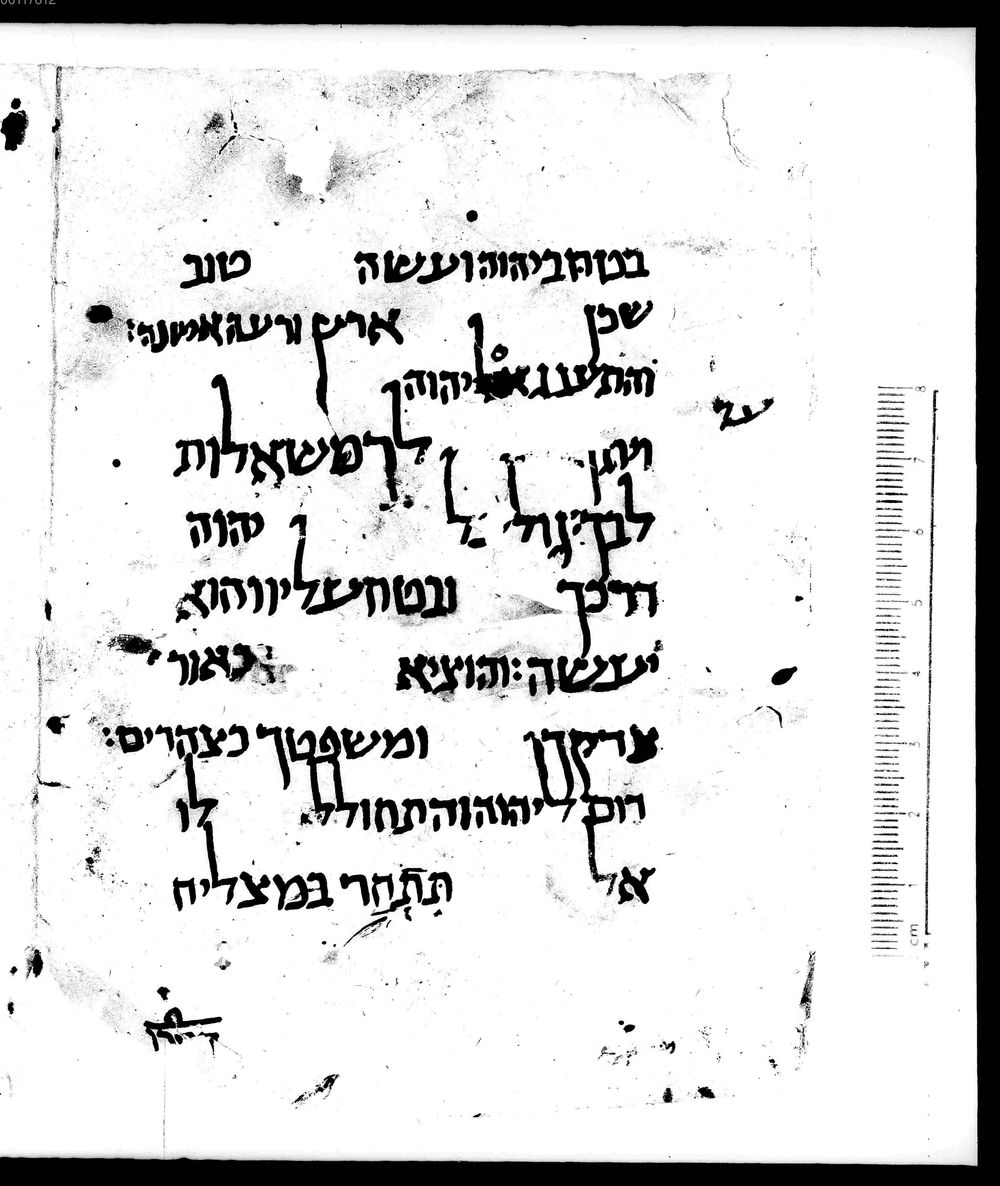 בטח ביהוה ועשה טוב
שכן ארץ ורעה אמונה:
והתענג יהוה
על
ויתן לך משאלות
לבך: גול יהוה
דרכך ובטח עליו והוא
יעשה: והוציא כאור
צדקך ומשפטך כצהרים:
דום ליהוה והתחולל לו
אל תתחר במצליח
8
7
6
5
4
3
2
1
cm